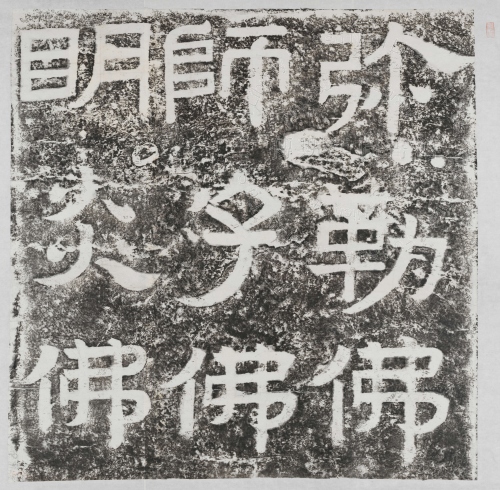 弥勒佛
師子佛
明炎佛